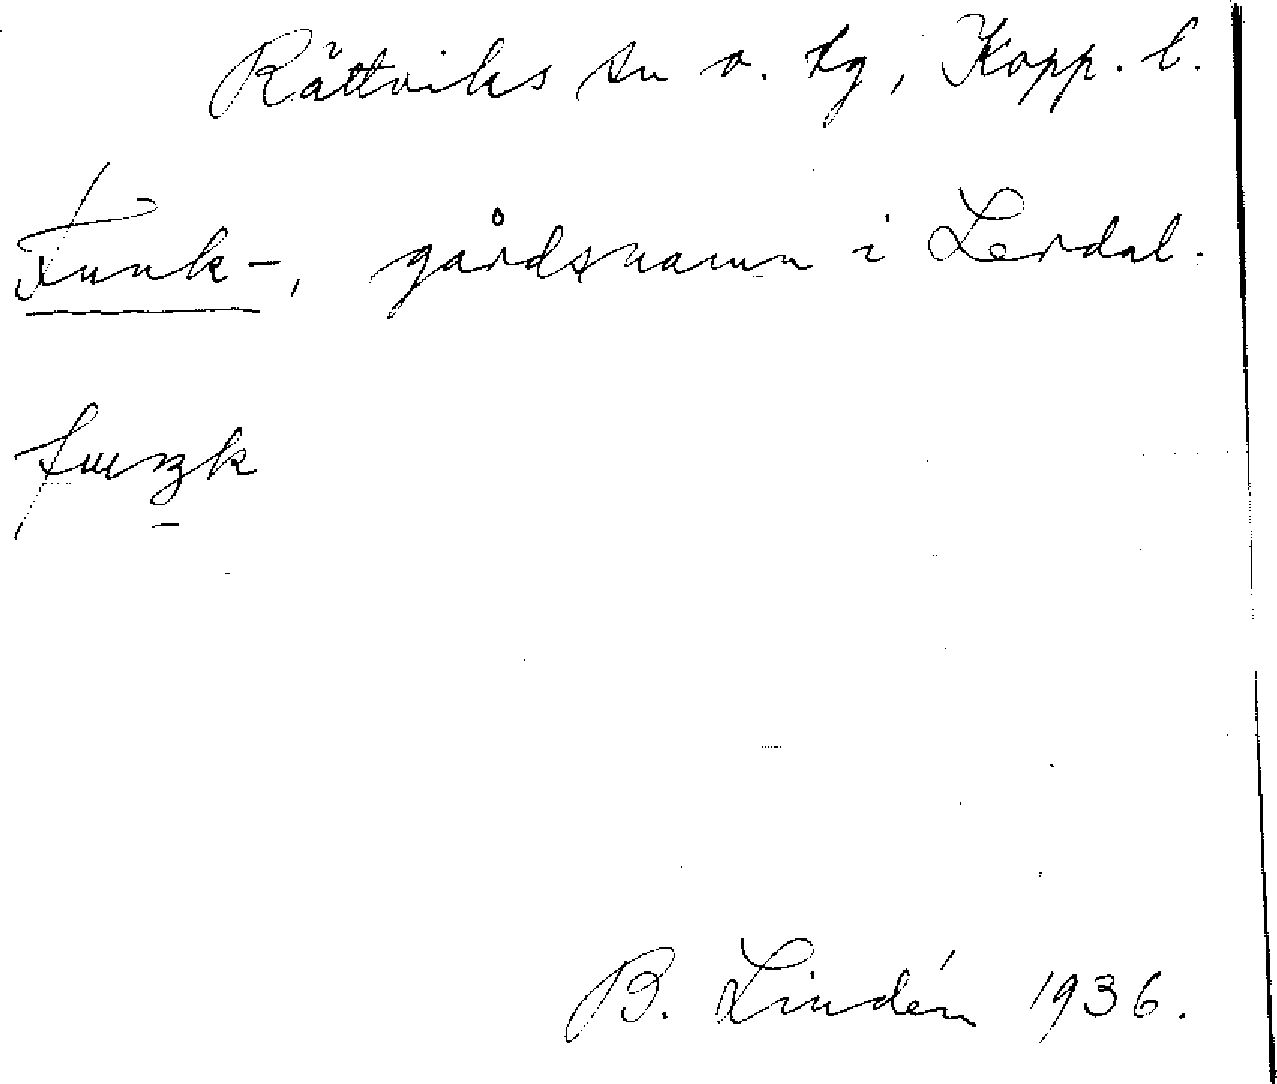 Rättviks sn o. tg, Kopp. l.
Funk-, gårdsnamn i Lerdal.
B. Lindén 1936.